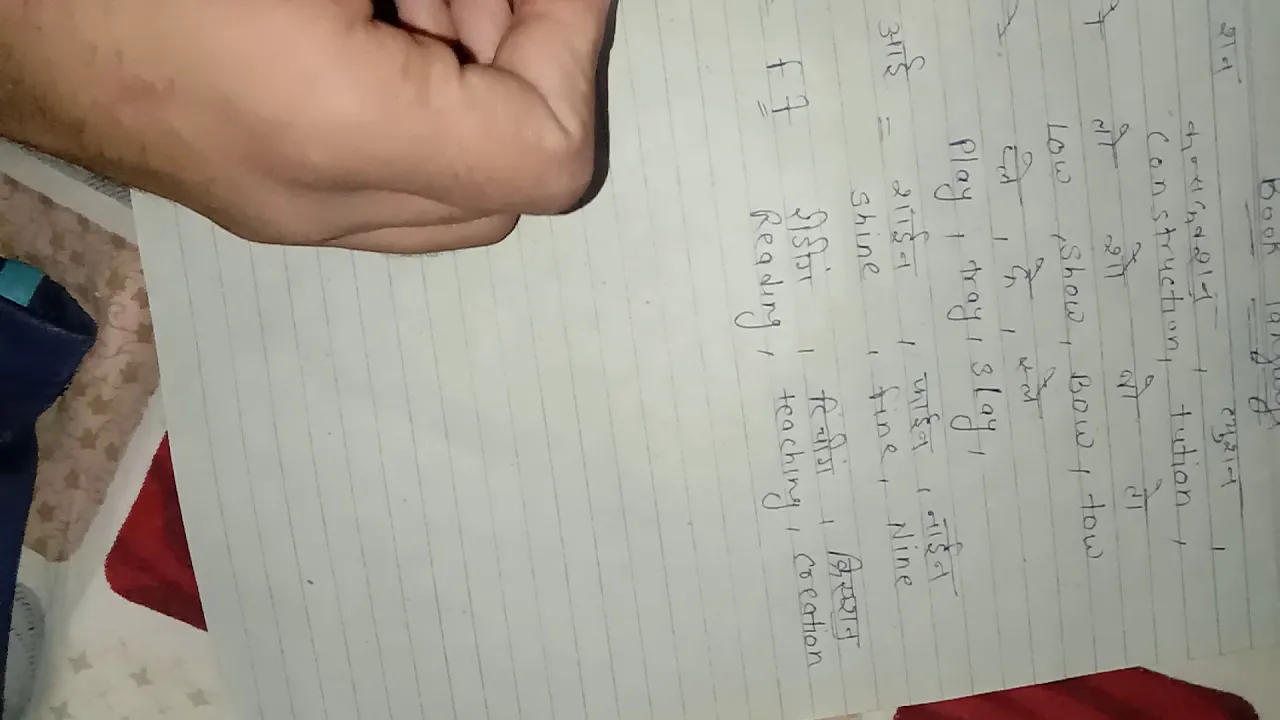 Book language
शन कन्सट्रक्शन, ट्युशन,
Construction, tution,
लो शो बो तो
Low, Show, Bow, tow
प्ले, ट्रे, स्ले
Play, tray, slay,
आई = शाईन, फाईन, नाईन
Shine, fine, Nine
रीडींग, टिचींग, क्रिएशन
Reading, teaching, creation